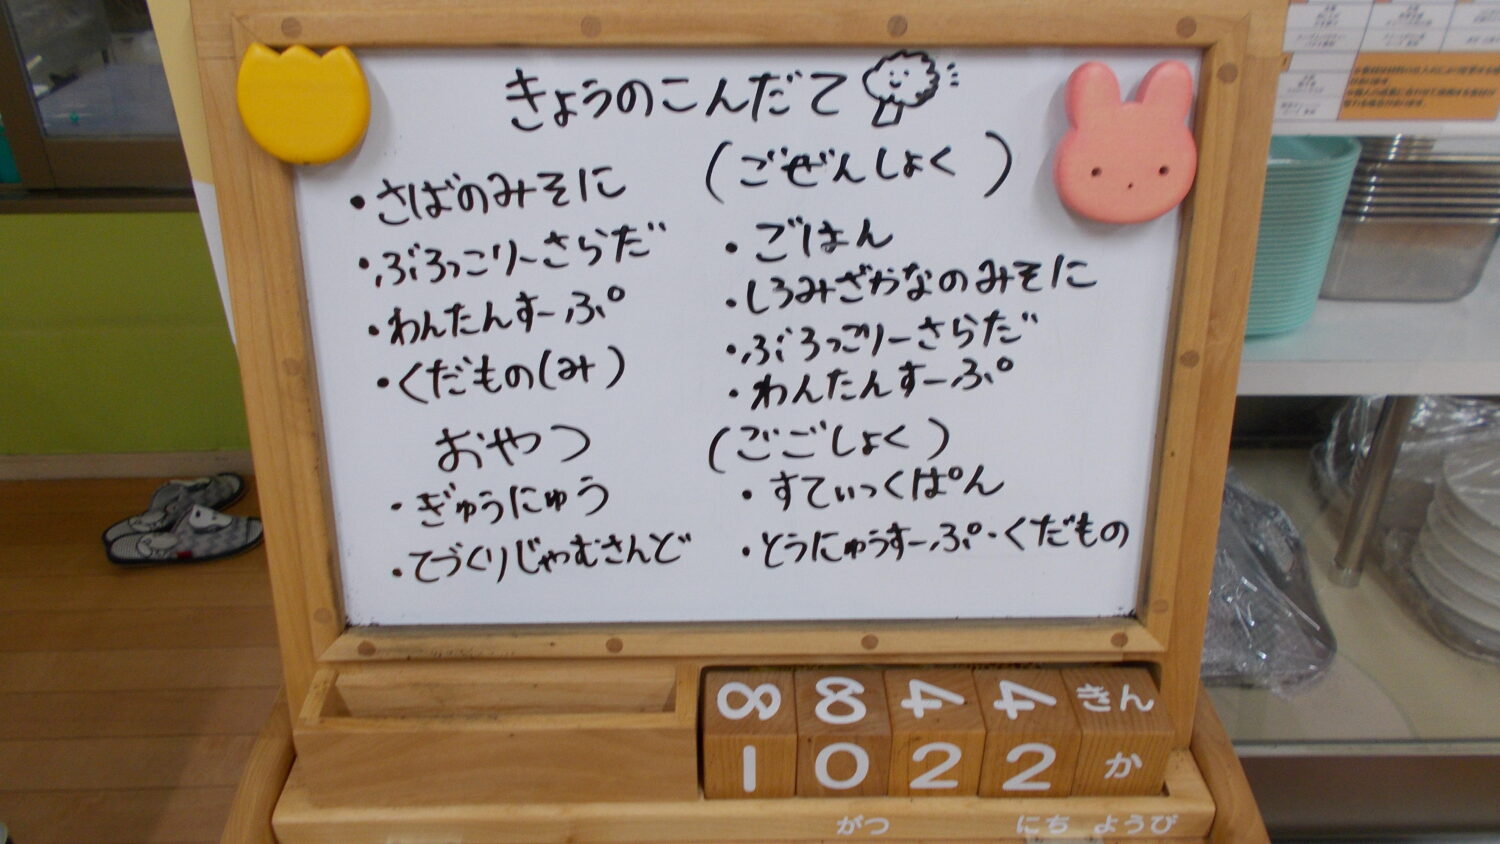 きょうのこんだて
・さばのみそに
・ぶろっこりーさらだ
・わんたんすーぷ
・くだもの(み)
おやつ
・ぎゅうにゅう
・てづくりじゃむさんど
(ごぜんしょく)
・ごはん
・しろみざかなのみそに
・ぶろっごりーさらだ
・わんたんすーぷ
(ごごしょく)
・すてぃっくぱん
・とうにゅうすーぷ・くだもの
8 8 4 4 きん
1 0 2 2 か
がつ にち ようび